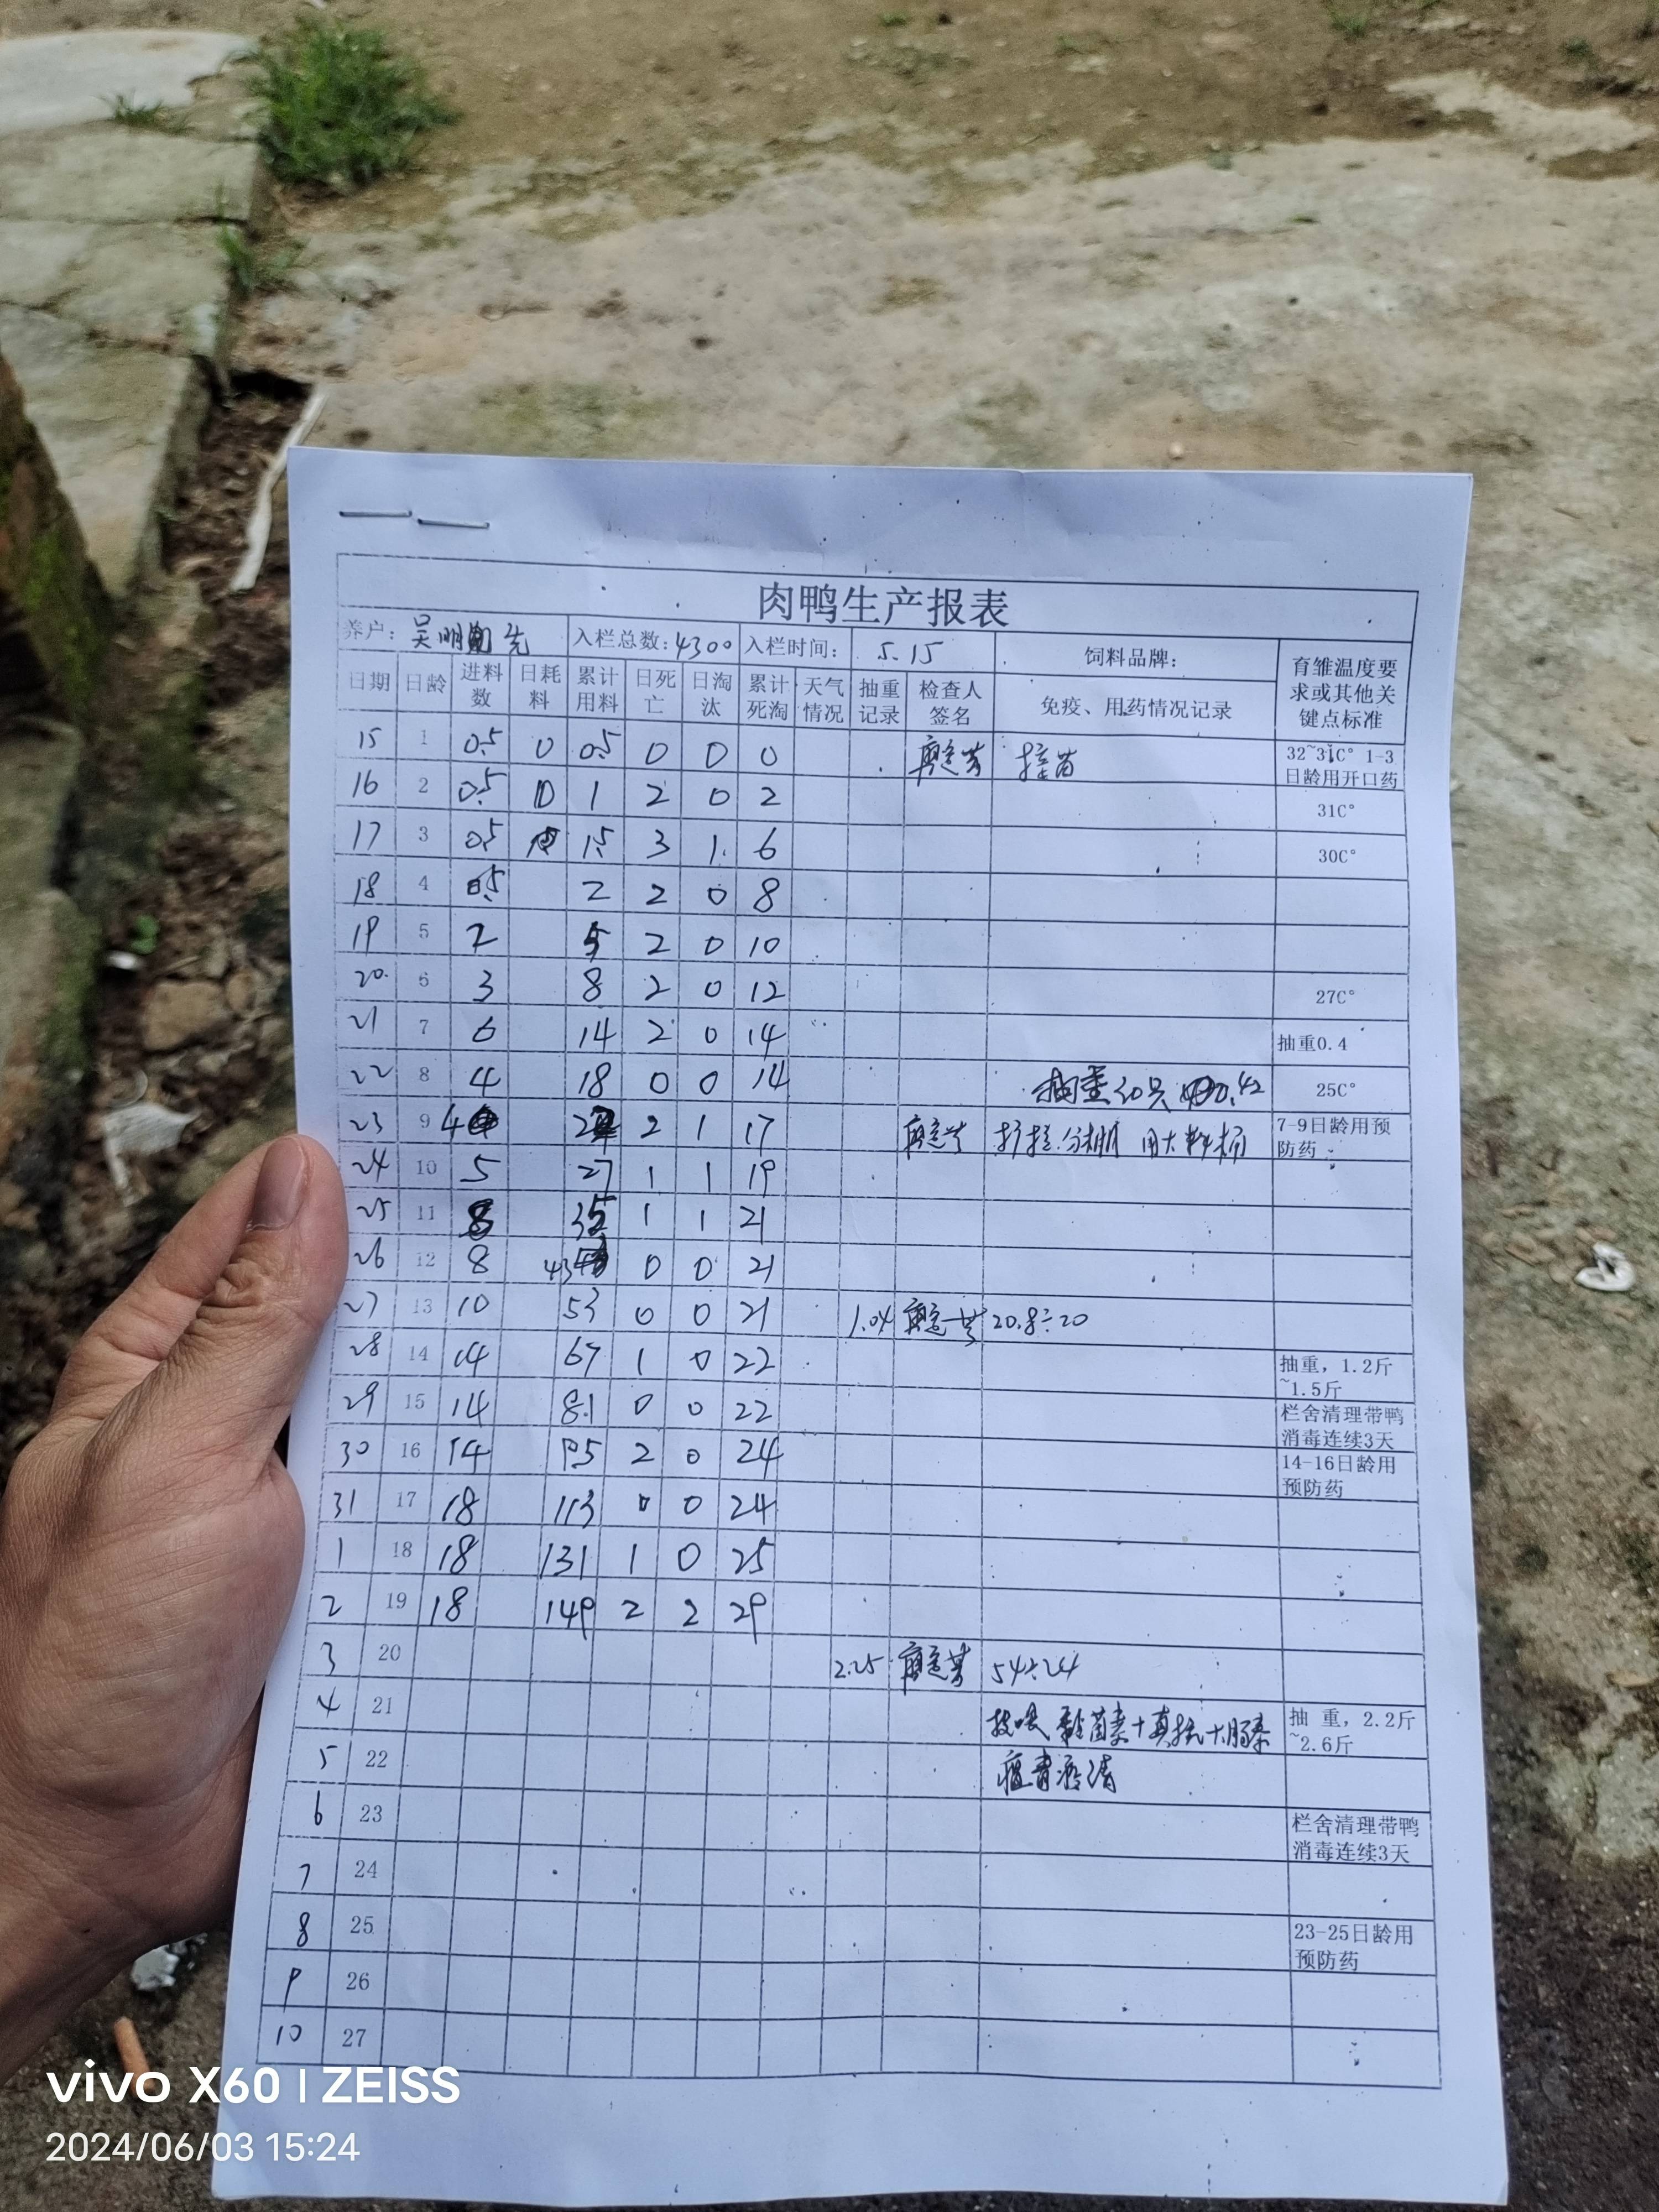 肉鸭生产报表
养户: 吴明 先 入栏总数: 4300 入栏时间: 5.15 饲料品牌: 育雏温度要求或其他关键点标准
日期 日龄 进料数 日耗料 累计用料 日死亡 日淘汰 累计死淘 天气情况 抽重记录 检查人签名 免疫、用药情况记录
15 1 0.5 0 0.5 0 0 0 接苗 32~31C° 1-3日龄用开口药
16 2 0.5 0 1 2 0 2 31C°
17 3 0.5 1.5 3 1 6 30C°
18 4 0.5 2 2 0 8
19 5 2 5 2 0 10
20 6 3 8 2 0 12 27C°
21 7 6 14 2 0 14 抽重0.4
22 8 4 18 0 0 14 抽重20只 0.42 25C°
23 9 4 22 2 1 17 扩栏.分棚 用大料桶 7-9日龄用预防药
24 10 5 27 1 1 19
25 11 8 35 1 1 21
26 12 8 43 0 0 21
27 13 10 53 0 0 21 1.04 20.8÷20
28 14 14 67 1 0 22 抽重，1.2斤~1.5斤
29 15 14 81 0 0 22 栏舍清理带鸭消毒连续3天
30 16 14 95 2 0 24 14-16日龄用预防药
31 17 18 113 0 0 24
1 18 18 131 1 0 25
2 19 18 149 2 2 29
3 20 2.25 54÷24
4 21 抽 重，2.2斤~2.6斤
5 22
6 23 栏舍清理带鸭消毒连续3天
7 24
8 25 23-25日龄用预防药
9 26
10 27
vivo X60 | ZEISS
2024/06/03 15:24